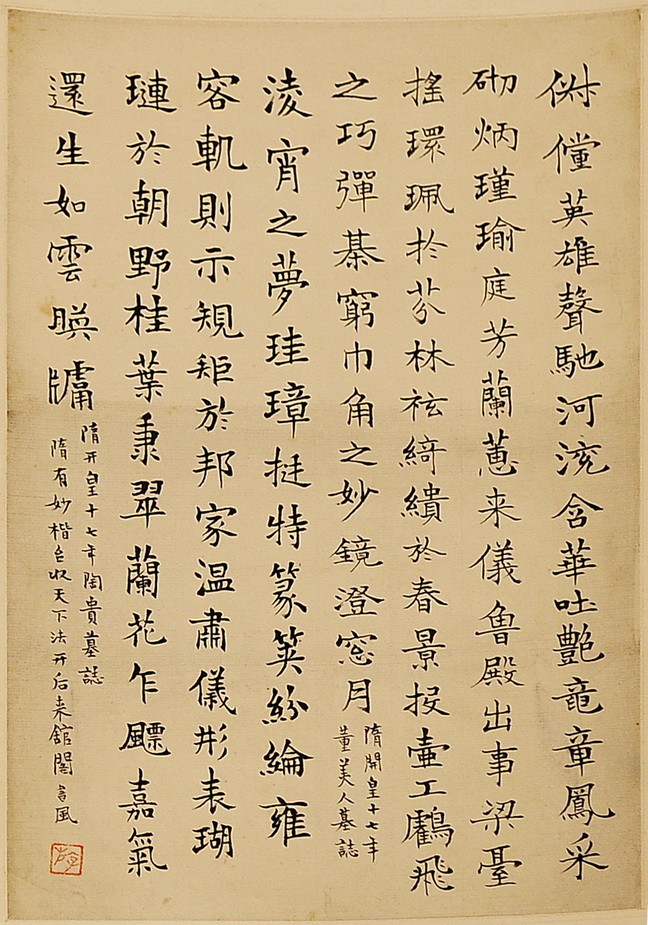 俶儻英雄聲馳河沇含華吐艷竜章鳳采
砌炳瑾瑜庭芳蘭蕙来儀魯殿出事梁臺
搖環珮於芬林袨綺繢於春景投壷工鸖飛
之巧彈棊窮巾角之妙鏡澄窓月
隋開皇十七年
董美人墓誌
淩宵之夢珪璋挺特篆筴紛綸雍
容軌則示規矩於邦家温肅儀形表瑚
璉於朝野桂葉秉翠蘭花乍飄嘉氣
還生如雲暎牗
隋开皇十七年陶貴墓誌
隋有妙楷已收天下法开后来舘閣書風